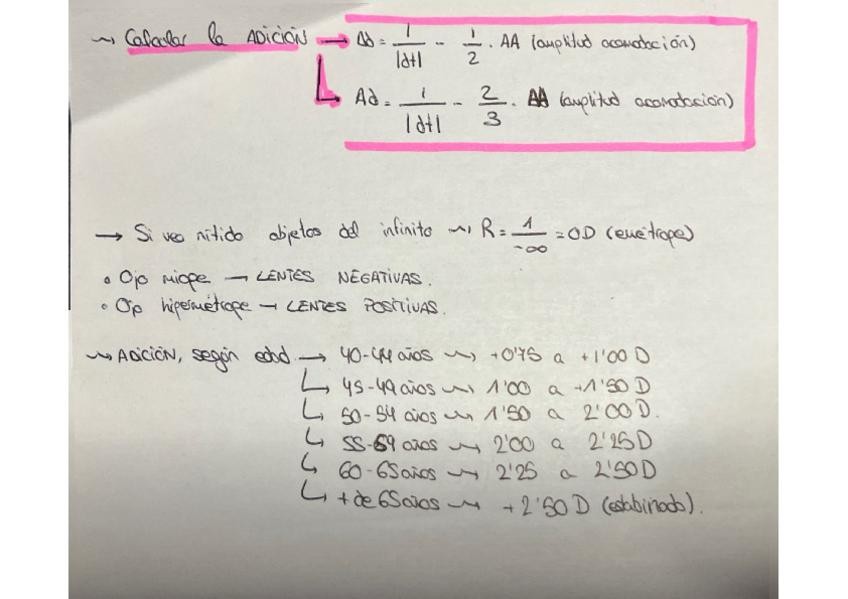 ~ Calcular la ADICIÓN → Ad = 1/|dt| - 1/2 . AA (amplitud acomodación)
↳ Ad = 1/|dt| - 2/3 . AA (amplitud acomodación)
→ Si veo nítido objetos del infinito ~ R = 1/-∞ = 0D (emétrope)
• Ojo miope → LENTES NEGATIVAS.
• Ojo hipermétrope → LENTES POSITIVAS.
~ ADICIÓN, según edad → 40-44 años ~ +0'75 a +1'00 D
↳ 45-49 años ~ 1'00 a +1'50 D
↳ 50-54 años ~ 1'50 a 2'00 D.
↳ 55-59 años ~ 2'00 a 2'25 D
↳ 60-65 años ~ 2'25 a 2'50 D
↳ + de 65 años ~ +2'50 D